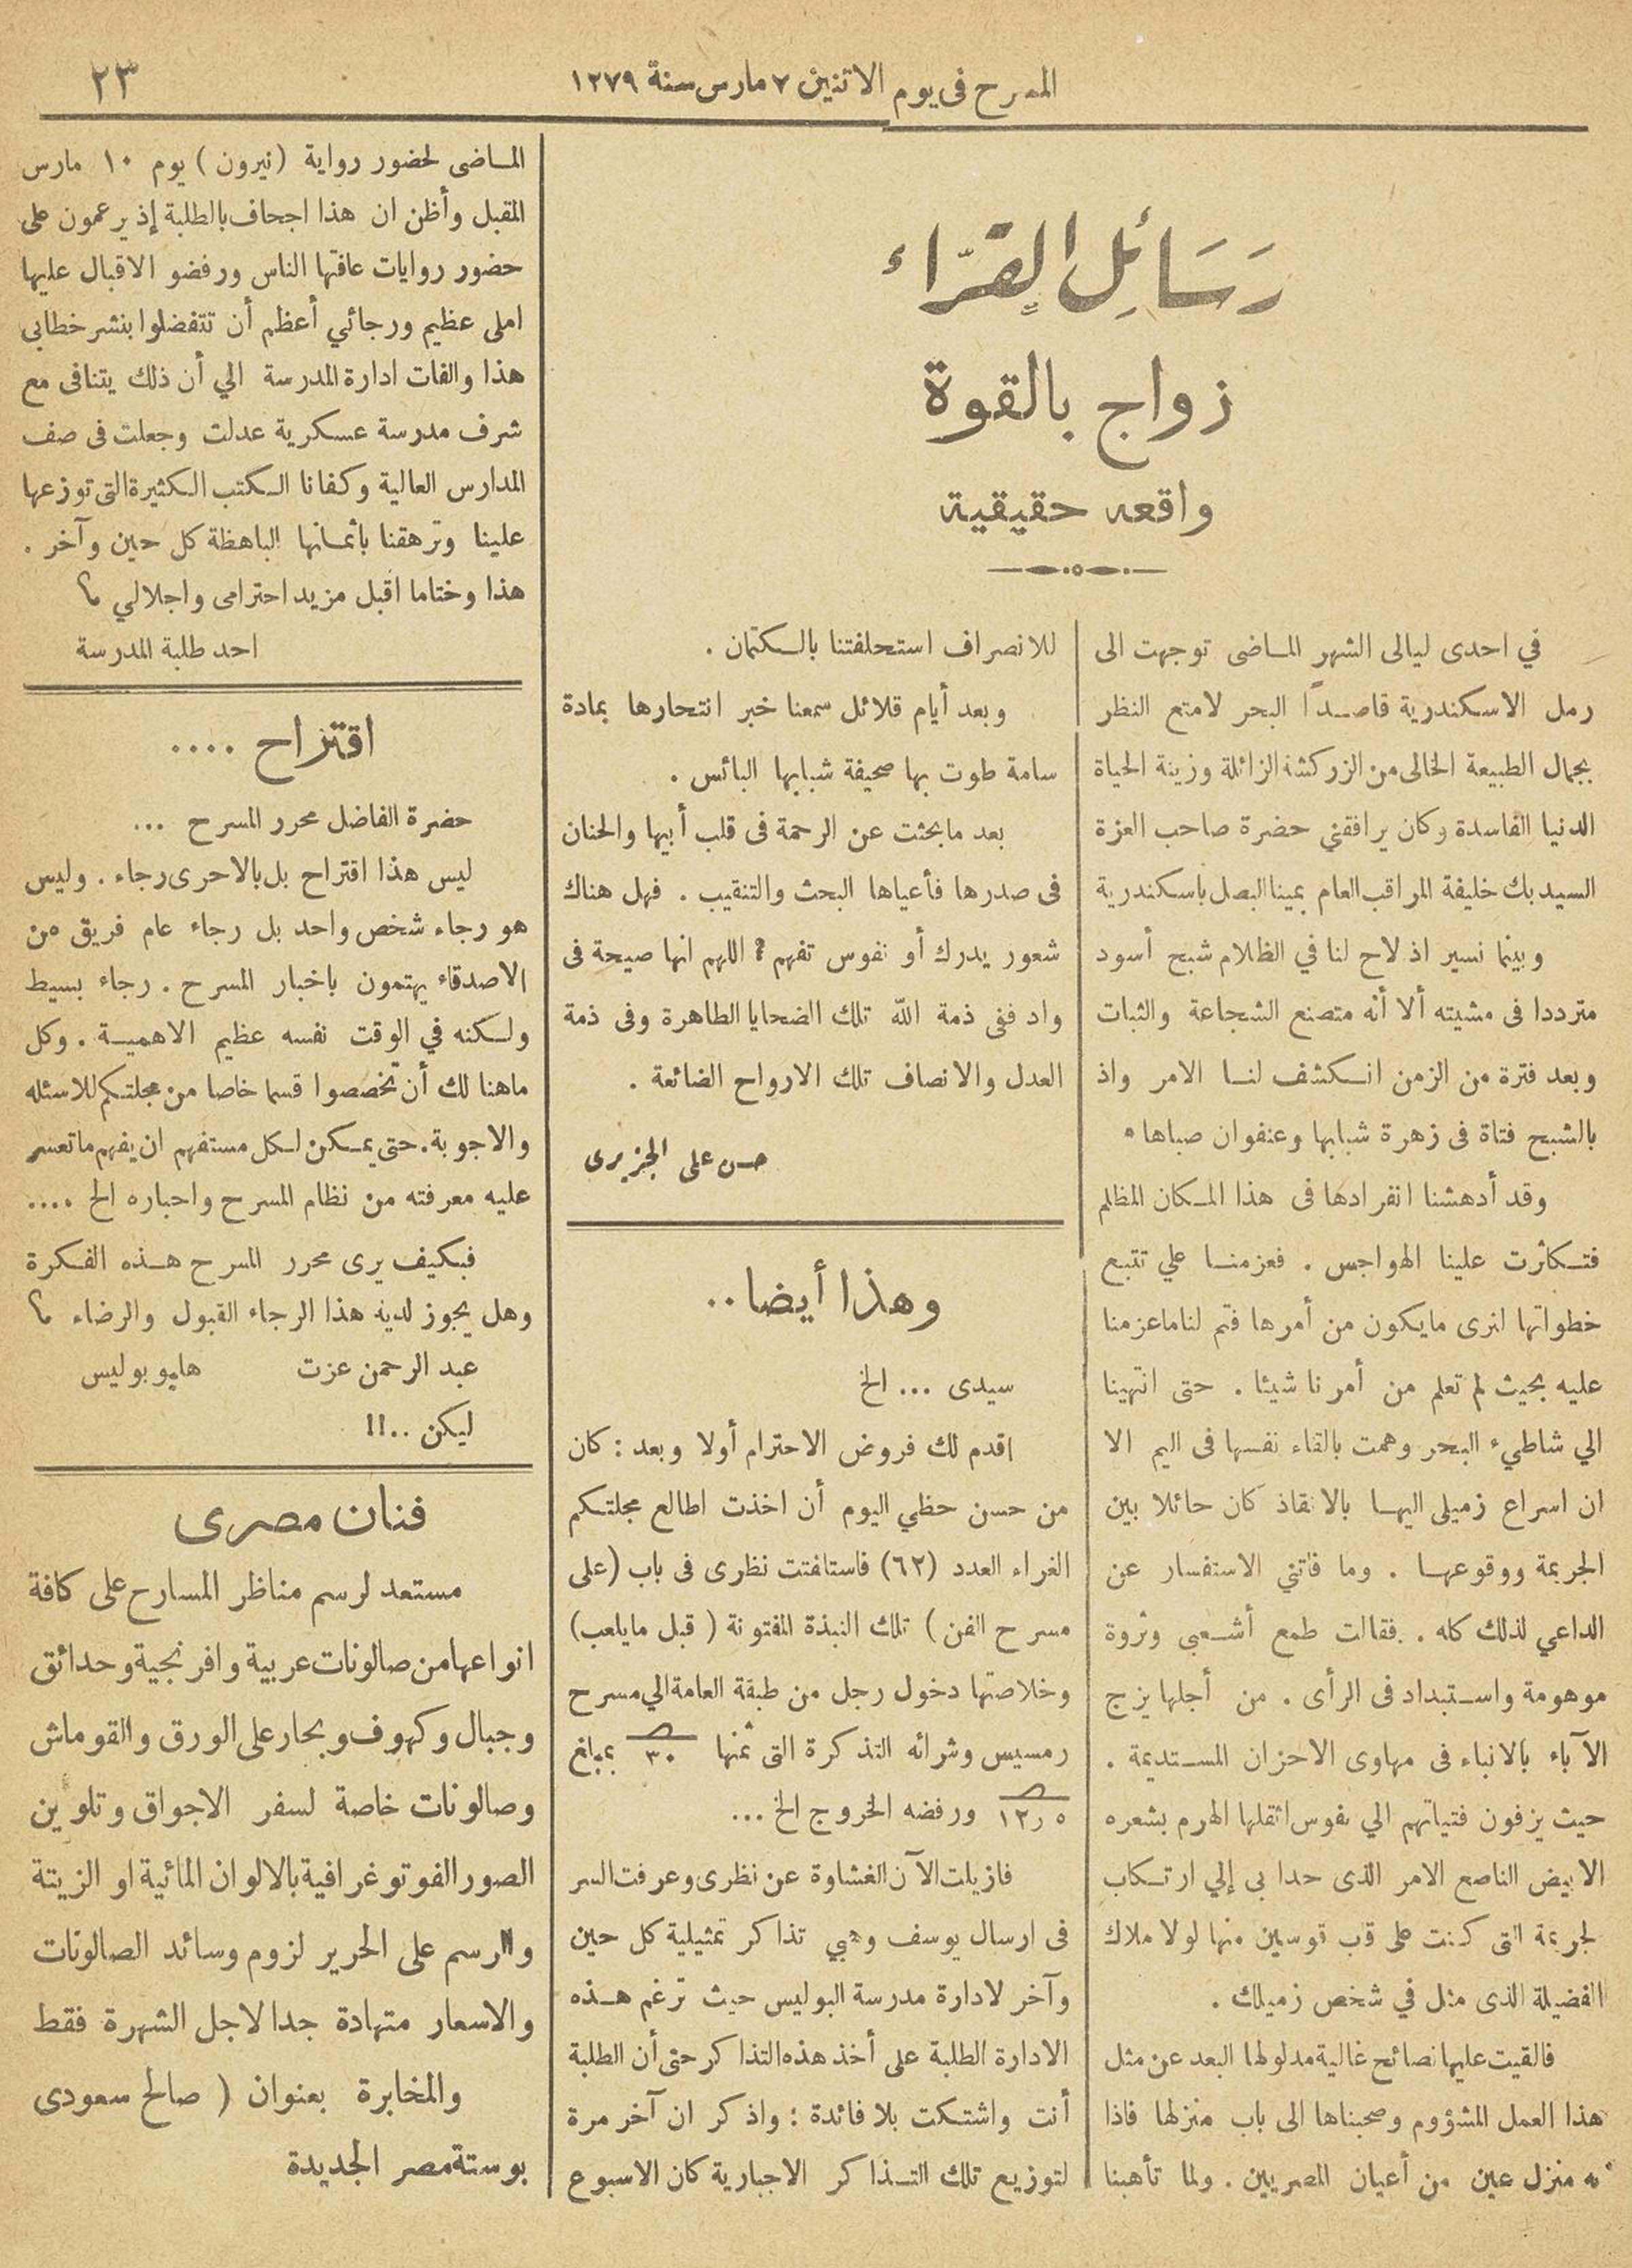 المسرح فى يوم الاثنين ٧ مارس سنة ١٢٧٩
٢٣
رسائل القراء
زواج بالقوة
واقعه حقيقية
في احدى ليالى الشهر الماضى توجهت الى
رمل الاسكندرية قاصدا البحر لامتع النظر
بجمال الطبيعة الخالى من الزركشة الزائلة وزينة الحياة
الدنيا الفاسدة وكان يرافقني حضرة صاحب العزة
السيد بك خليفة المراقب العام بمينا البصل باسكندرية
وبينما نسير اذ لاح لنا في الظلام شبح أسود
مترددا فى مشيته ألا أنه متصنع الشجاعة والثبات
وبعد فترة من الزمن انكشف لنا الامر واذ
بالشبح فتاة فى زهرة شبابها وعنفوان صباها .
وقد أدهشنا انفرادها فى هذا المكان المظلم
فتكاثرت علينا الهواجس . فعزمنا علي تتبع
خطواتها لنرى مايكون من أمرها فتم لنا ماعزمنا
عليه بحيث لم تعلم من أمرنا شيئا . حتى انتهينا
الي شاطيء البحر وهمت بالقاء نفسها فى اليم الا
ان اسراع زميلى اليها بالانقاذ كان حائلا بين
الجريمة ووقوعها . وما فاتني الاستفسار عن
الداعي لذلك كله . فقالت طمع أشعبي وثروة
موهومة واستبداد فى الرأى . من أجلها يزج
الآباء بالانباء فى مهاوى الاحزان المستديمة .
حيث يزفون فتياتهم الي نفوس اثقلها الهرم بشعره
الابيض الناصع الامر الذى حدا بى إلي ارتكاب
لجريمة التى كنت على قب قوسين منها لولا ملاك
الفضيلة الذى مثل في شخص زميلك .
فالقيت عليها نصائح غالية مدلولها البعد عن مثل
هذا العمل المشؤوم وصحبناها الى باب منزلها فاذا
به منزل عين من أعيان المصريين . ولما تأهبنا
للانصراف استحلفتنا بالكتمان .
وبعد أيام قلائل سمعنا خبر انتحارها بمادة
سامة طوت بها صحيفة شبابها البائس .
بعد مابحثت عن الرحمة فى قلب أبيها والحنان
فى صدرها فأعياها البحث والتنقيب . فهل هناك
شعور يدرك أو نفوس تفهم ؟ اللهم انها صيحة فى
واد ففى ذمة الله تلك الضحايا الطاهرة وفى ذمة
العدل والانصاف تلك الارواح الضائعة .
حسن على الجزيرى
وهذا أيضا ..
سيدى ... الخ
اقدم لك فروض الاحترام أولا وبعد : كان
من حسن حظي اليوم أن اخذت اطالع مجلتكم
الغراء العدد (٦٢) فاستلفتت نظرى فى باب (على
مسرح الفن) تلك النبذة المفتونة (قبل مايلعب)
وخلاصتها دخول رجل من طبقة العامة الي مسرح
رمسيس وشرائه التذكرة التى ثمنها ٣٠ بمبلغ
١٢٫٥ ورفضه الخروج الخ ...
فازيلت الآن الغشاوة عن نظرى وعرفت السر
فى ارسال يوسف وهبي تذاكر تمثيلية كل حين
وآخر لادارة مدرسة البوليس حيث ترغم هذه
الادارة الطلبة على أخذ هذه التذاكر حتى أن الطلبة
أنت واشتكت بلا فائدة ؛ واذكر ان آخر مرة
لتوزيع تلك التذاكر الاجبارية كان الاسبوع
الماضى لحضور رواية (نيرون) يوم ١٠ مارس
المقبل وأظن ان هذا اجحاف بالطلبة إذ يرغمون على
حضور روايات عافتها الناس ورفضو الاقبال عليها
املى عظيم ورجائي أعظم أن تتفضلوا بنشر خطابى
هذا والفات ادارة المدرسة الي أن ذلك يتنافى مع
شرف مدرسة عسكرية عدلت وجعلت فى صف
المدارس العالية وكفانا الكتب الكثيرة التى توزعها
علينا وترهقنا باثمانها الباهظة كل حين وآخر .
هذا وختاما اقبل مزيد احترامى واجلالي ؟
احد طلبة المدرسة
اقتراح ....
حضرة الفاضل محرر المسرح ...
ليس هذا اقتراح بل بالاحرى رجاء . وليس
هو رجاء شخص واحد بل رجاء عام فريق من
الاصدقاء يهتمون باخبار المسرح . رجاء بسيط
ولكنه في الوقت نفسه عظيم الاهمية . وكل
ماهنا لك أن تخصصوا قسما خاصا من مجلتكم للاسئله
والاجوبة . حتى يمكن لكل مستفهم ان يفهم ما تعسر
عليه معرفته من نظام المسرح واحباره الخ ....
فبكيف يرى محرر المسرح هذه الفكرة
وهل يجوز لديه هذا الرجاء القبول والرضاء ؟
عبد الرحمن عزت هليوبوليس
ليكن ..!!
فنان مصرى
مستعد لرسم مناظر المسارح على كافة
انواعها من صالونات عربية وافرنجية وحدائق
وجبال وكهوف وبحار على الورق والقوماش
وصالونات خاصة لسفر الاجواق وتلوين
الصور الفوتوغرافية بالالوان المائية او الزيتة
والرسم على الحرير لزوم وسائد الصالونات
والاسعار متهادة جدا لاجل الشهرة فقط
والمخابرة بعنوان ( صالح سعودى
بوستة مصر الجديدة